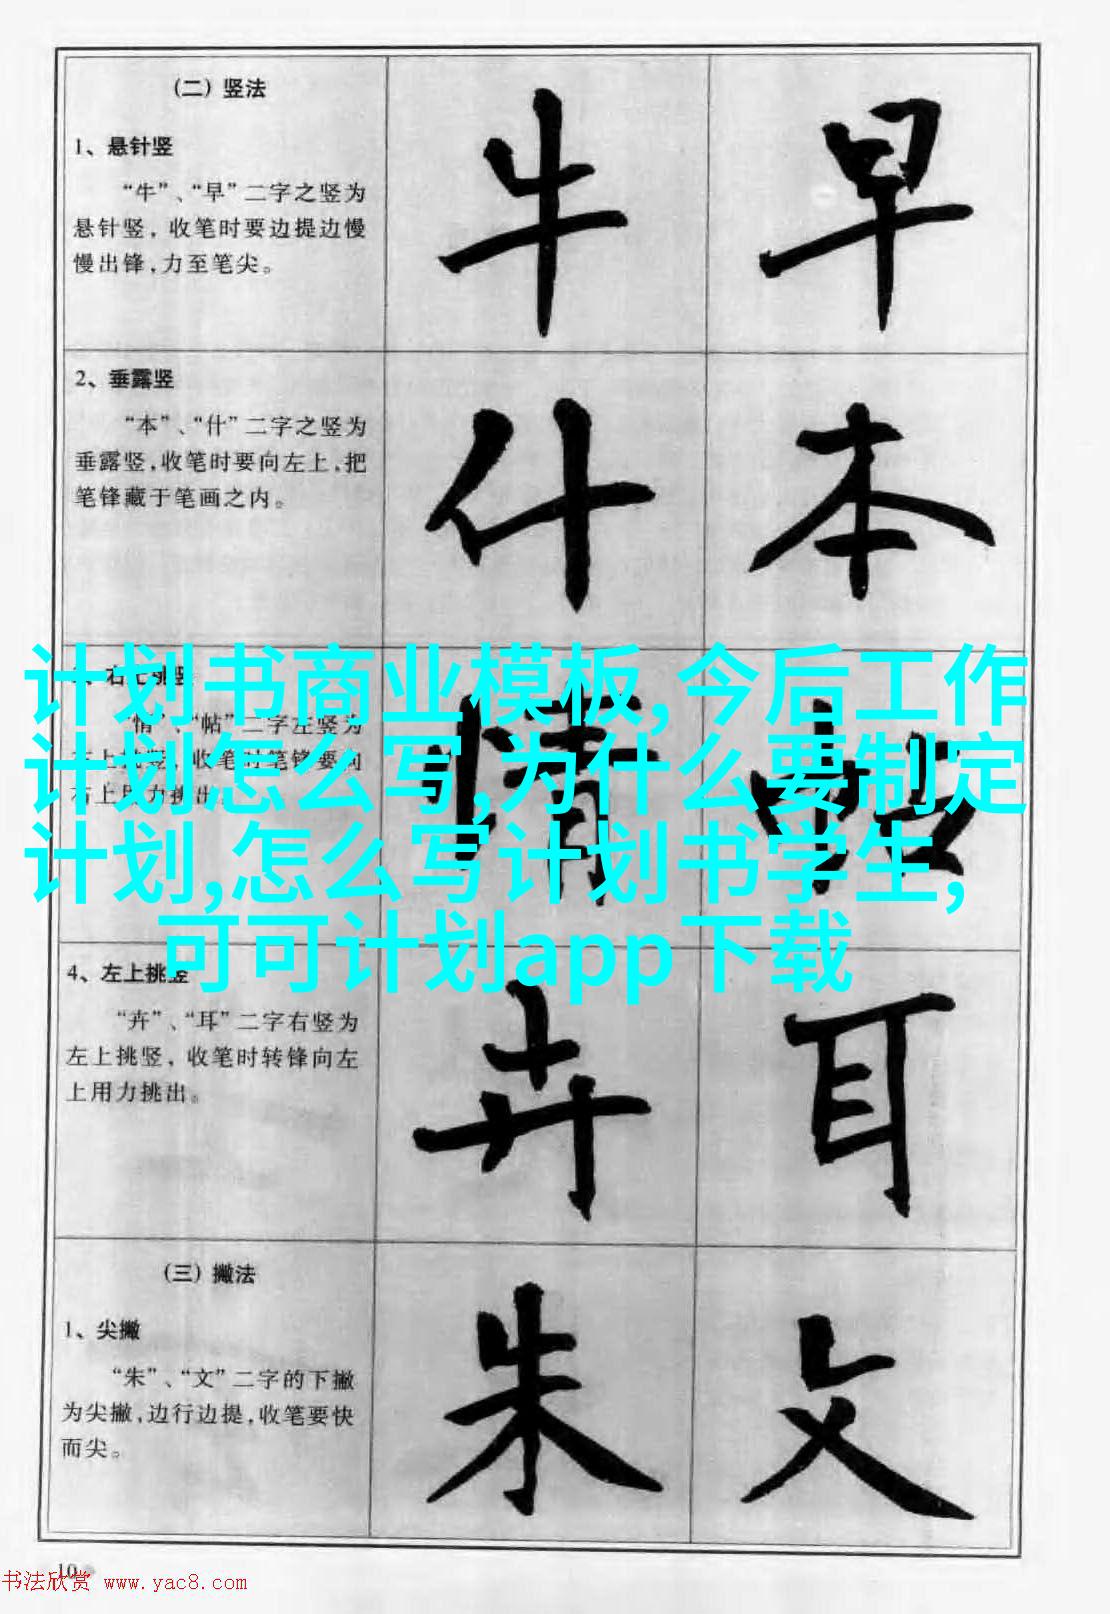 (二) 竖法
1、悬针竖
“牛”、“早”二字之竖为
悬针竖，收笔时要边提边慢
慢出锋，力至笔尖。
牛
早
2、垂露竖
“本”、“什”二字之竖为
垂露竖，收笔时要向左上，把
笔锋藏于笔画之内。
什
本
计划书商业模板,今后工作
计划怎么写,为什么要制定
计划,怎么写计划书学生,
可可计划app下载
“情”、“帖”二字左竖为
收笔时笔锋要向
右上用力挑出
情
帖
4、左上挑竖
“卉”、“耳”二字右竖为
左上挑竖，收笔时转锋向左
上用力挑出。
卉
耳
(三) 撇法
1、尖撇
“朱”、“文”二字的下撇
为尖撇，边行边提，收笔要快
而尖。
朱
文
10
书法欣赏 www.yac8.com